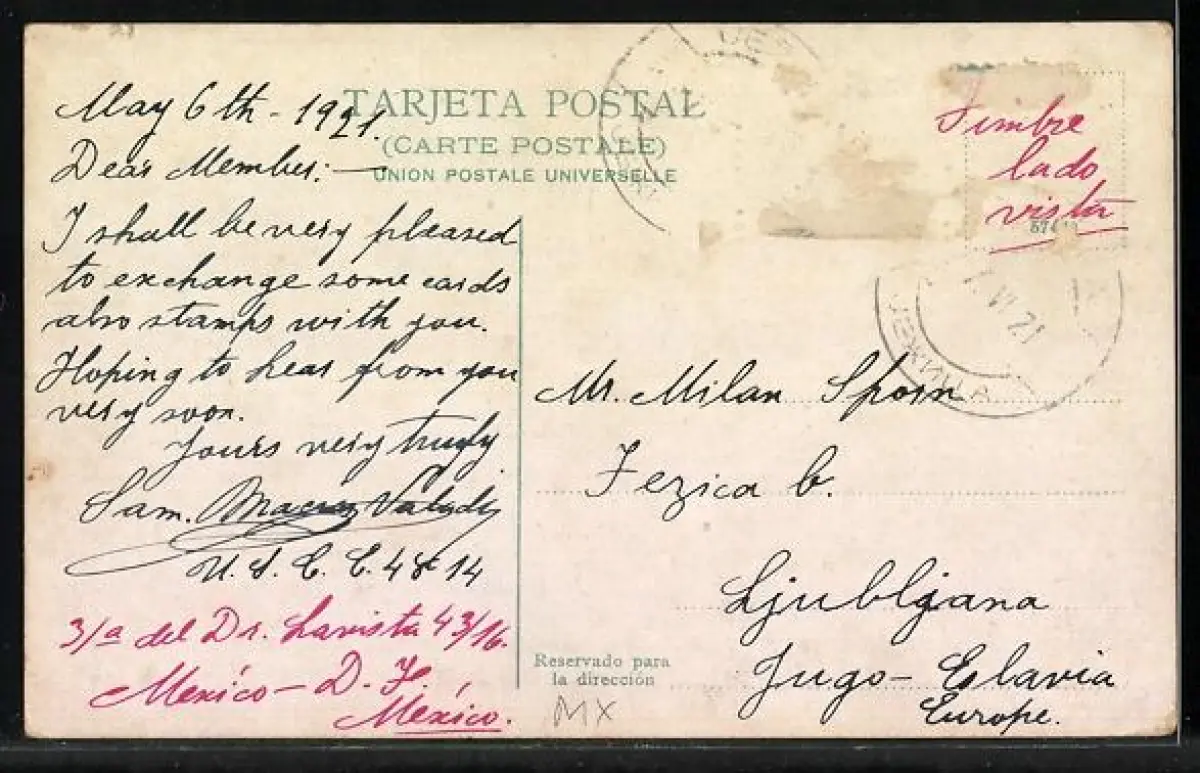 TARJETA POSTAL
(CARTE POSTALE)
UNION POSTALE UNIVERSELLE
May 6th - 1921.
Dear Member: —
I shall be very pleased
to exchange some cards
also stamps with you.
Hoping to hear from you
very soon.
Yours very truly
Sam.
U. S. C. C. 4814
3/a del Dr. Lavista 43/16.
Mexíco - D. F.
Mexíco.
Timbre
lado
vista
VI 21
Mr. Milan Sporn
Jezica b.
Ljubljana
Jugo-Eslavia
Europe.
Reservado para
la dirección
MX